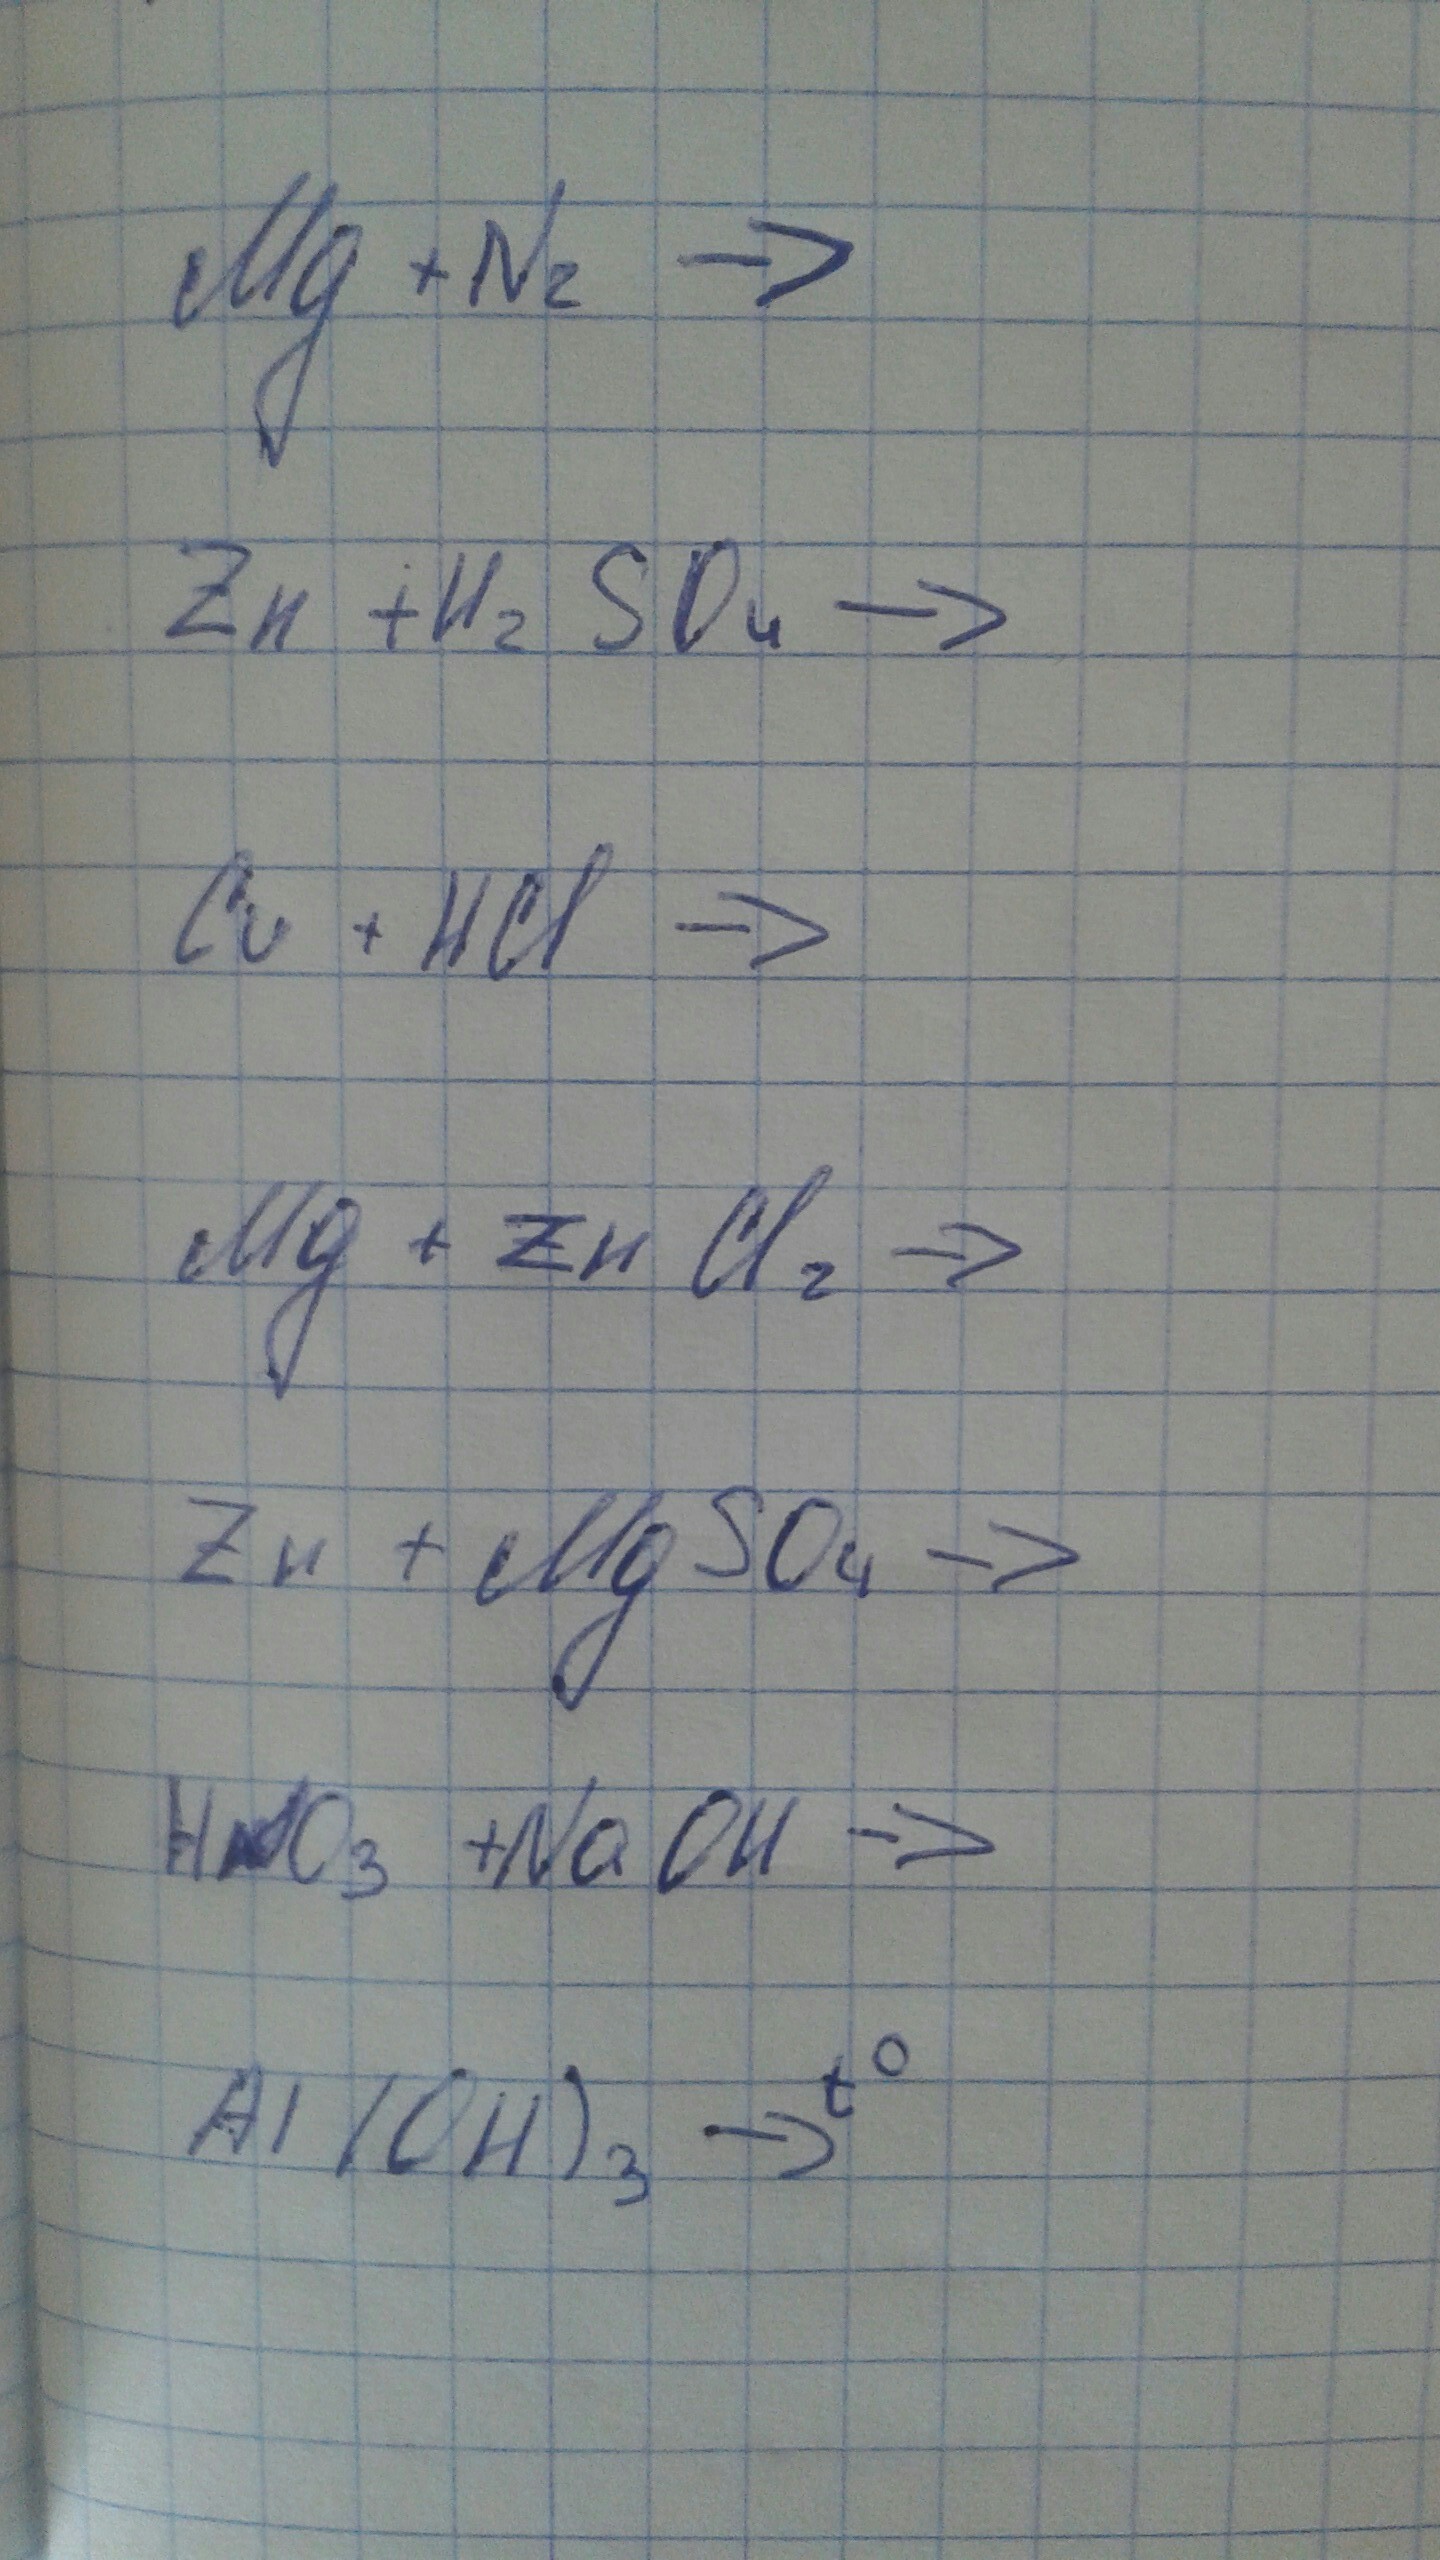 Mg + N₂ →
Zn + H₂SO₄ →
Cu + HCl →
Mg + ZnCl₂ →
Zn + MgSO₄ →
HNO₃ + NaOH →
Al(OH)₃ → t°